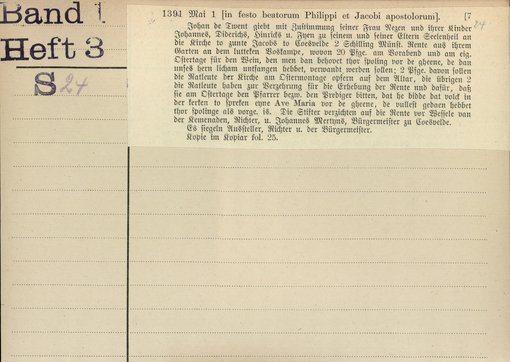 Band 1
Heft 3
S 24
1391 Mai 1 [in festo beatorum Philippi et Jacobi apostolorum]. [7
24
Johan de Twent giebt mit Zustimmung seiner Frau Nezen und ihrer Kinder
Johannes, Diderichs, Hinrichs u. Fyen zu seinem und seiner Eltern Seelenheil an
die Kirche to zunte Jacobs to Coesvelde 2 Schilling Münst. Rente aus ihrem
Garten an dem lutteken Voskampe, wovon 20 Pfge. am Vorabend und am eig.
Ostertage für den Wein, den men dan behovet thor spoling vor de ghene, de dan
unses hern licham untfangen hebbet, verwandt werden sollen; 2 Pfge. davon sollen
die Ratleute der Kirche am Ostermontage opfern auf dem Altar, die übrigen 2
die Ratleute haben zur Verzehrung für die Erhebung der Rente und dafür, daß
sie am Ostertage den Pfarrer bezw. den Prediger bitten, dat he bidde dat volck in
der kerken to spreken eyne Ave Maria vor de ghene, de vullest gedaen hebbet
thor spolinge als vorge. is. Die Stifter verzichten auf die Rente vor Wessele van
der Kemenaden, Richter, u. Johannes Mertyns, Bürgermeister zu Coesvelde.
Es siegeln Aussteller, Richter u. der Bürgermeister.
Kopie im Kopiar fol. 25.